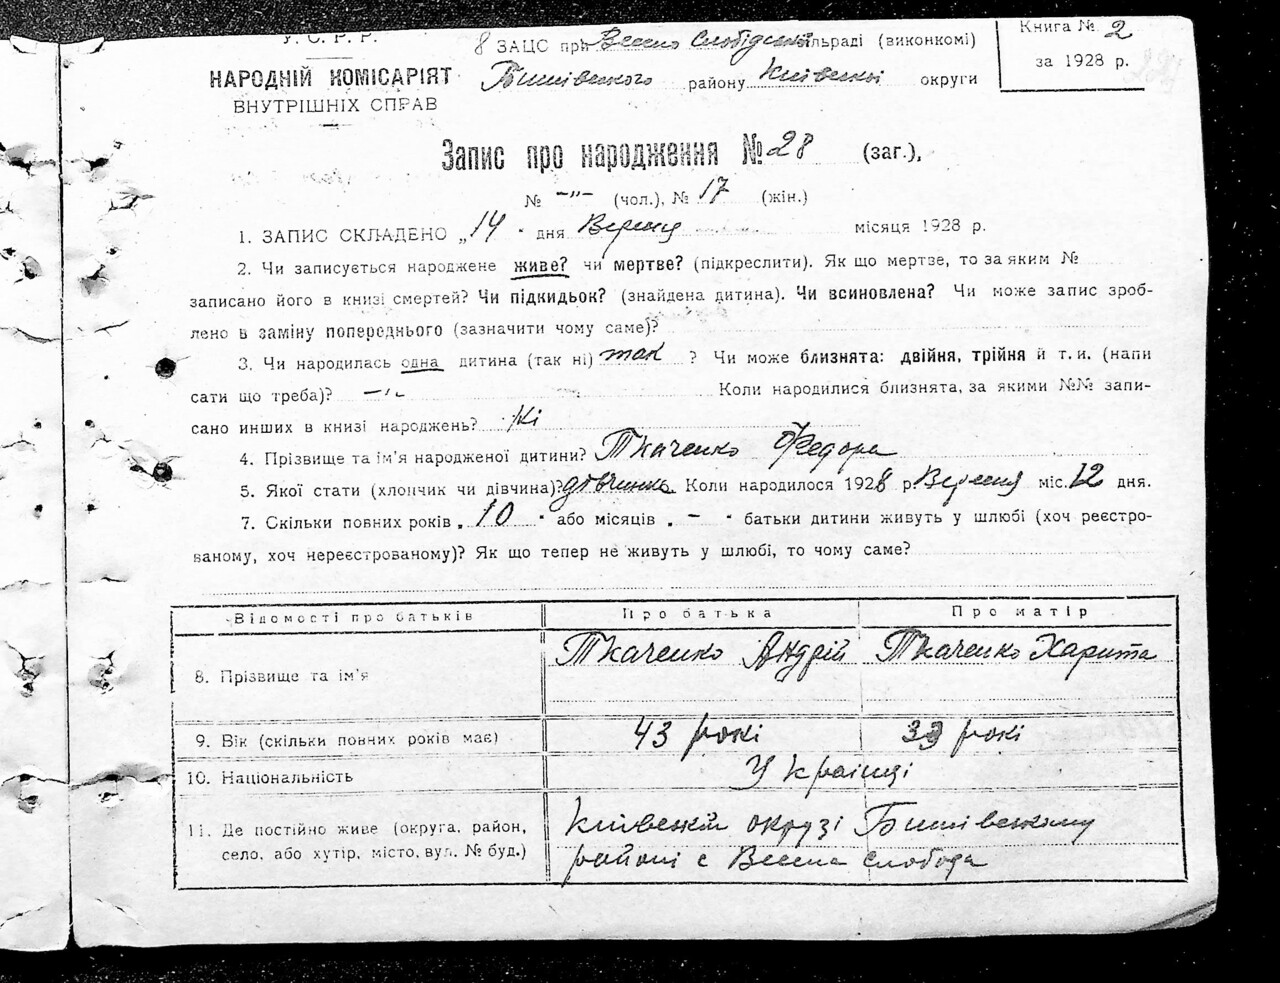 У. С. Р. Р.
НАРОДНІЙ КОМІСАРІЯТ
ВНУТРІШНІХ СПРАВ
в ЗАЦС при Весело Слобідській сільраді (виконкомі)
Бишівського району Київської округи
Книга № 2
за 1928 р.
Запис про народження № 28 (заг.),
№ -"- (чол.), № 17 (жін.)
1. ЗАПИС СКЛАДЕНО „14" дня Вересня місяця 1928 р.
2. Чи записується народжене живе? чи мертве? (підкреслити). Як що мертве, то за яким №
записано його в книзі смертей? Чи підкидьок? (знайдена дитина). Чи всиновлена? Чи може запис зроб-
лено в заміну попереднього (зазначити чому саме)?
3. Чи народилась одна дитина (так ні) так ? Чи може близнята: двійня, трійня й т. и. (напи
сати що треба)? -"- Коли народилися близнята, за якими №№ запи-
сано инших в книзі народжень? Ні
4. Прізвище та ім'я народженої дитини? Ткаченко Федора
5. Якої стати (хлопчик чи дівчина)? дівчинка Коли народилося 1928 р. Вересня міс. 12 дня.
7. Скільки повних років „10" або місяців „-" батьки дитини живуть у шлюбі (хоч реєстро-
ваному, хоч нереєстрованому)? Як що тепер не живуть у шлюбі, то чому саме?
Відомості про батьків Про батька Про матір
8. Прізвище та ім'я Ткаченко Андрій Ткаченко Харита
9. Вік (скільки повних років має) 43 рокі 33 рокі
10. Національність Українці
11. Де постійно живе (округа, район, Київській окрузі Бишівському
село, або хутір, місто, вул. № буд.) районі с Весела Слобода